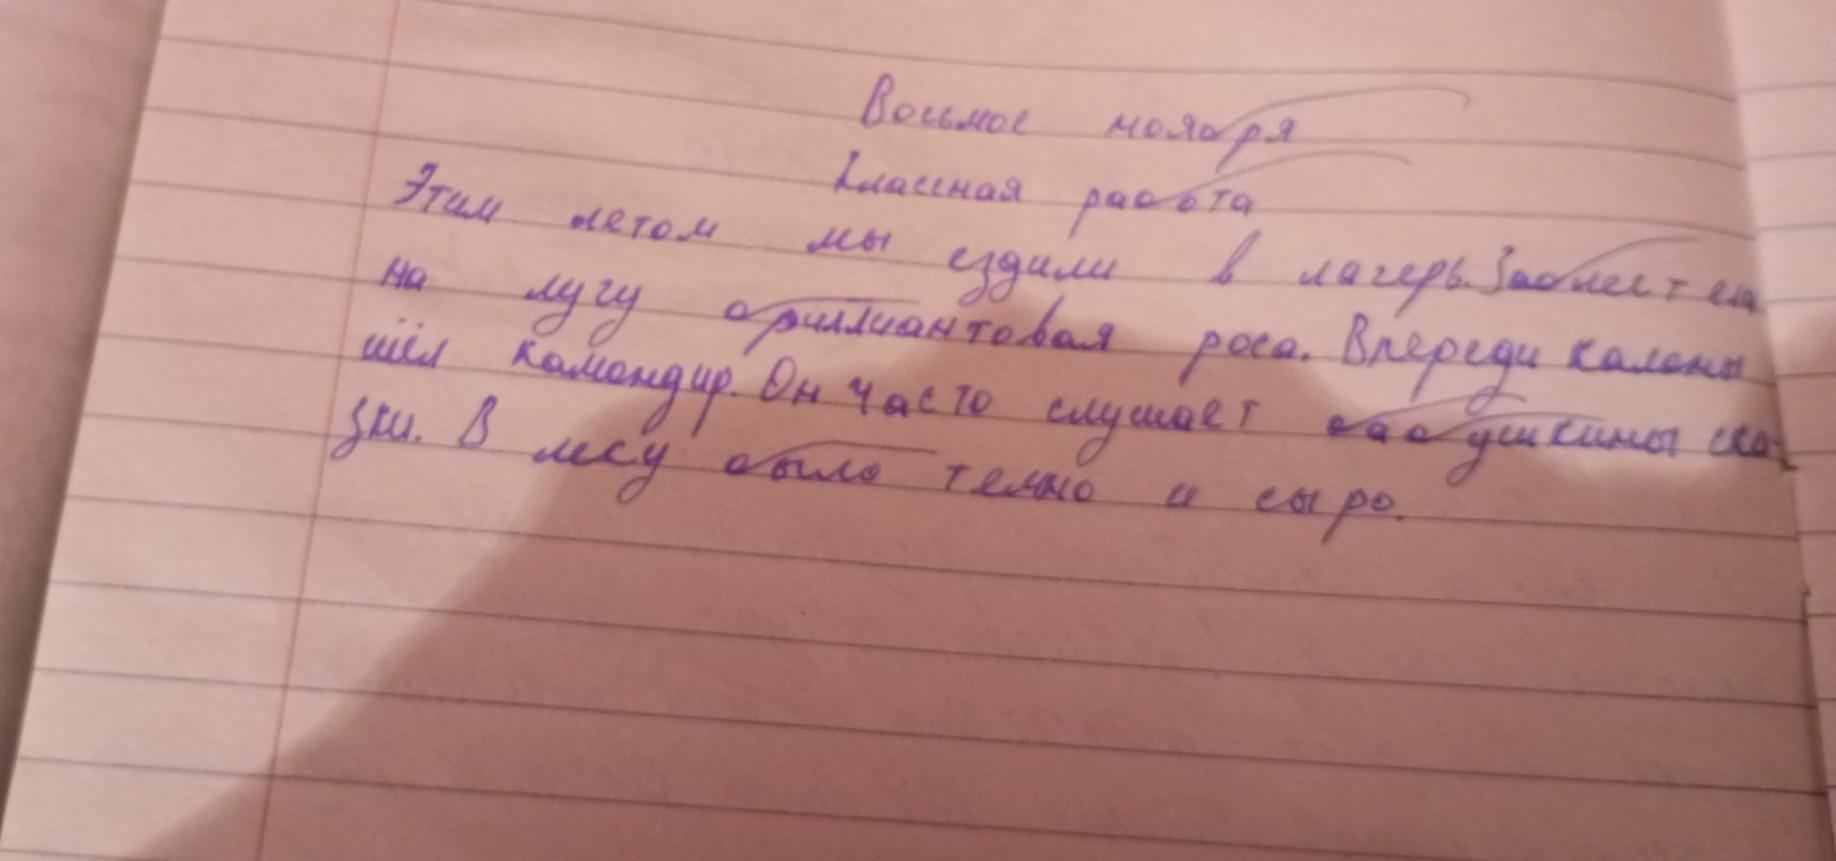 Восьмое ноября
Классная работа
Этим летом мы ездили в лагерь. Заблестела
на лугу бриллиантовая роса. Впереди калоны
шёл камандир. Он часто слушает бабушкины ска-
зки. В лесу было темно и сыро.